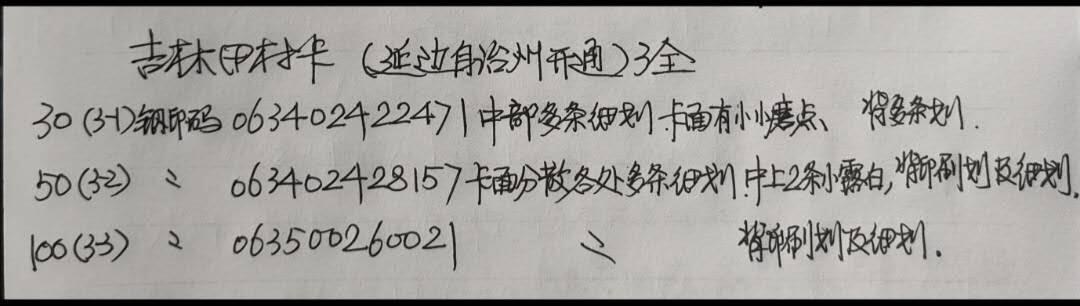 吉林田村卡（延边自治州开通）3全
30（3-1）钢印码 063402422471 中部多条细划.卡面有小小磨点、背多条划.
50（3-2） 〃 063402428157 卡面分散各处多条细划.中上2条小露白,背印刷划及细划.
100（3-3） 〃 063500260021 〃 背印刷划及细划.